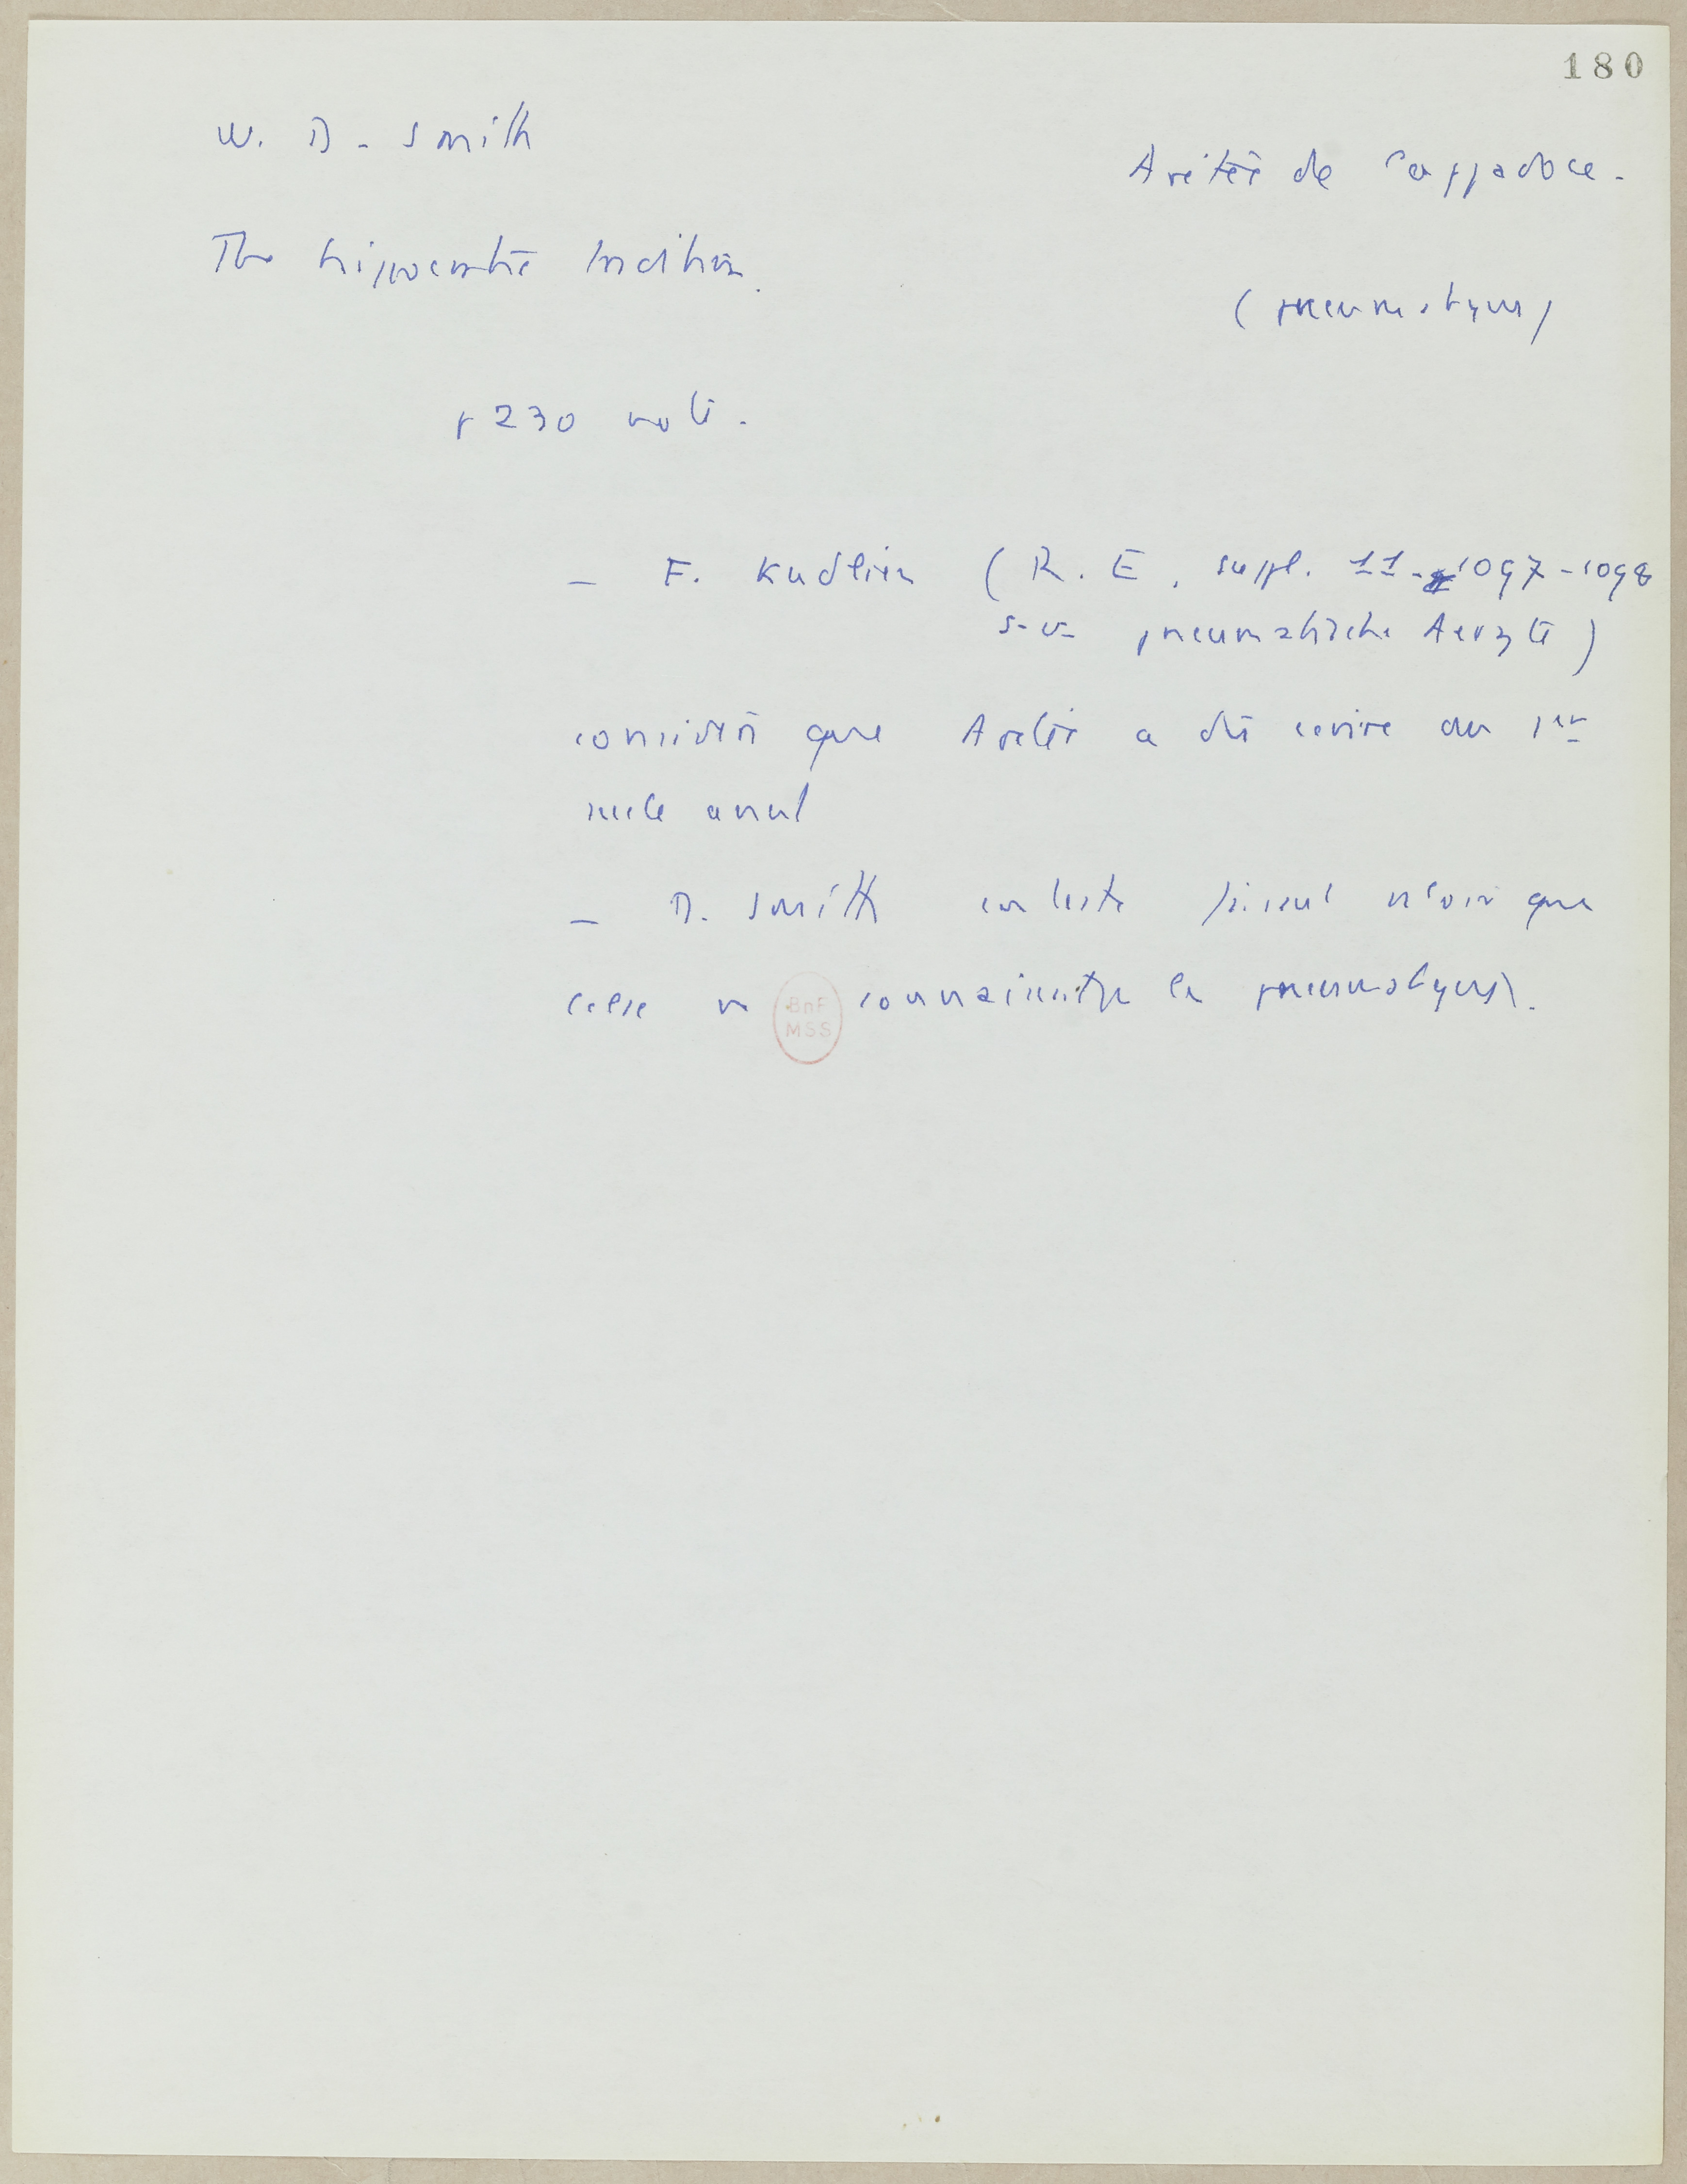 180
W. D. Smith
Arétée de Cappadoce.
The hippocratic tradition.
(pneumatique)
p 230 note.
— F. Kudlien (R. E. suppl. 11. 1097-1098
s. v. pneumatische Aerzte)
considère que Arétée a dû écrire au 1er
siècle avant
— D. Smith conteste disant n'voir que
Celse ne connaissait les pneumatiques.
BnF
MSS